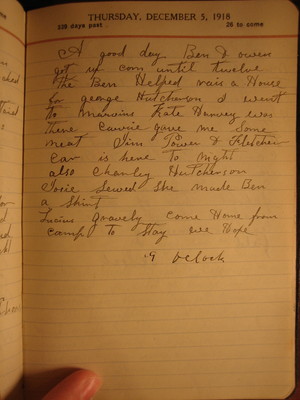 THURSDAY, DECEMBER 5, 1918
338 days past
26 to come
A good day Ben & owen
got up corn until twelve
the Ben Helped rais a House
for george Hutcherson I went
to Mamies Kate Harvey was
there Cawrie gave me Some
meat Jim Tower & Fletcher
Car is here to night
also Charley Hutcherson
Josie Sewed She made Ben
a Shirt
Lucius gravely come Home from
camp to stay we Hope
9 oclock